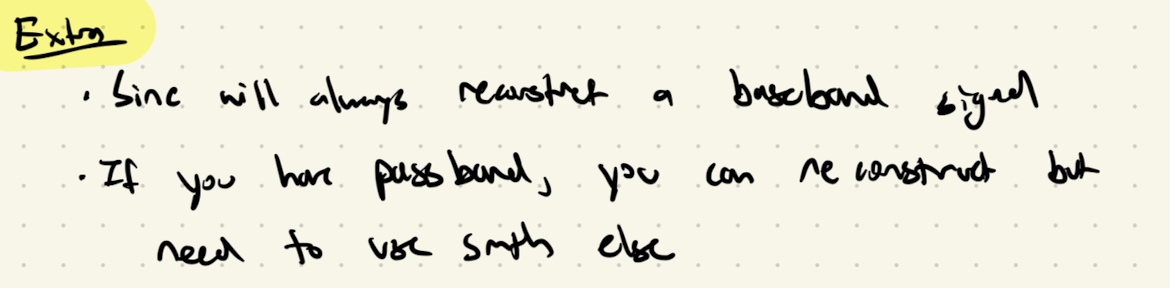 Extra
• Sinc will always reconstruct a baseband signal
• If you have passband, you can reconstruct but
need to use smth else